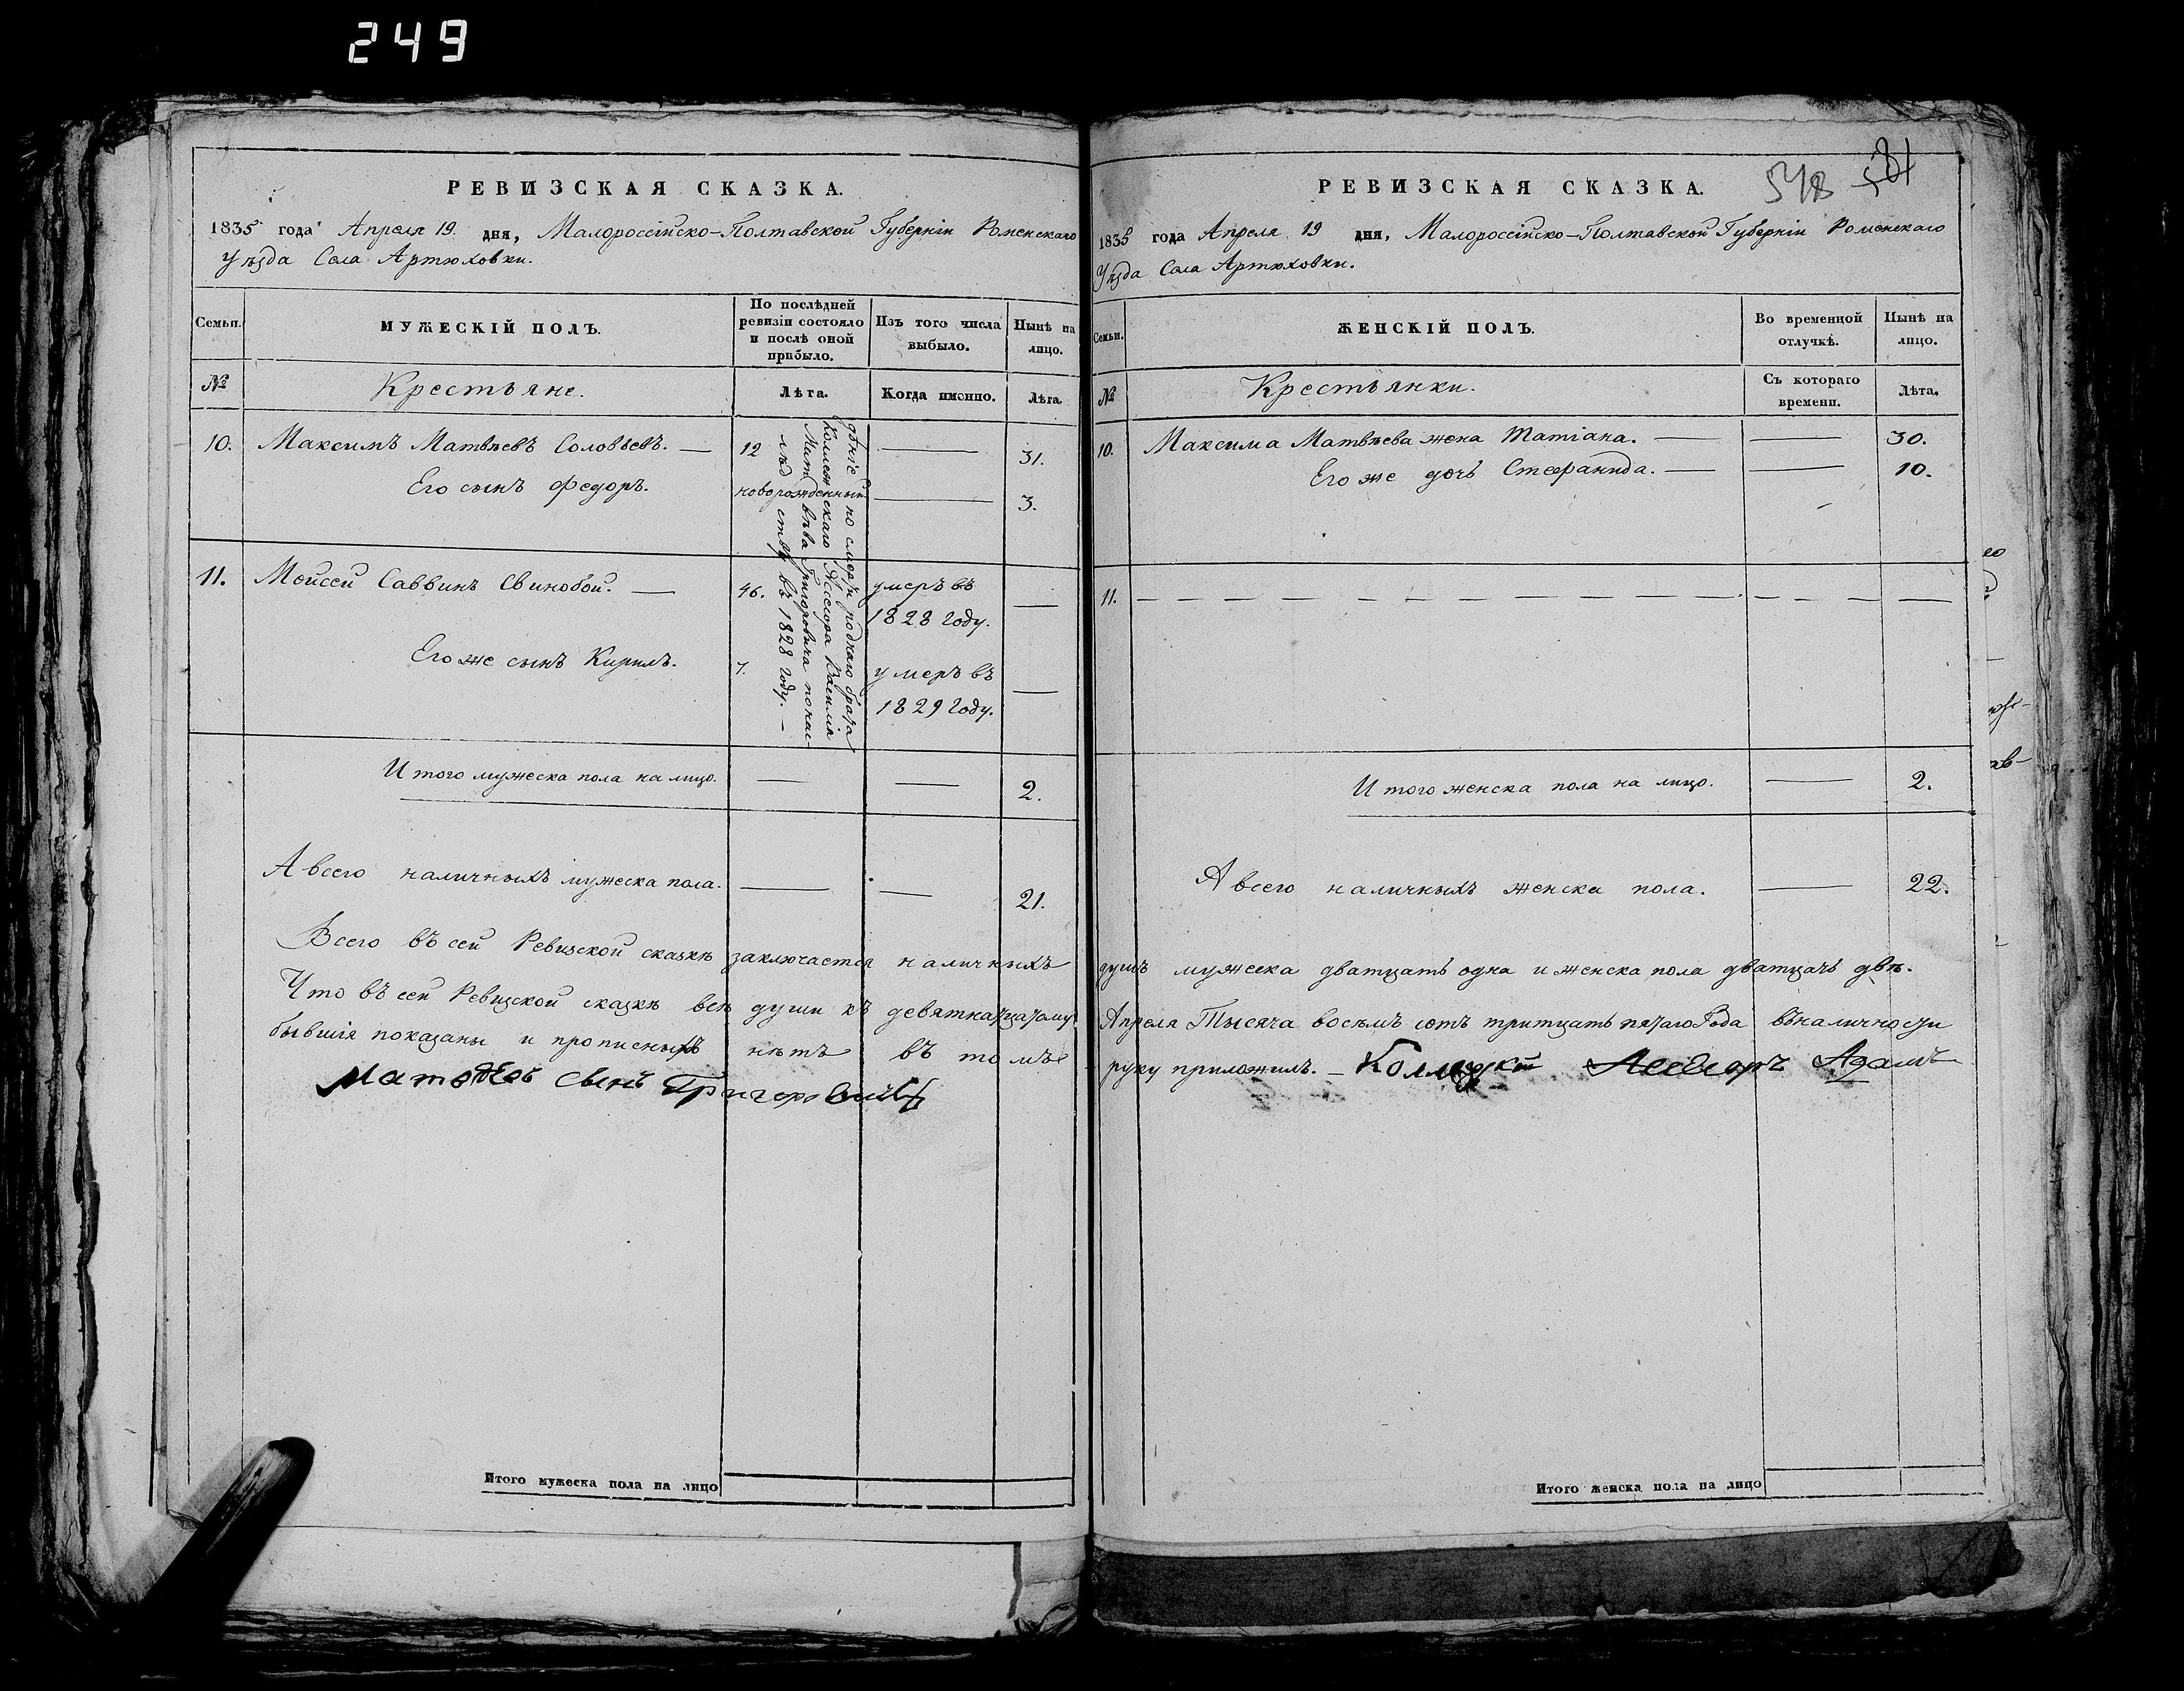 249
РЕВИЗСКАЯ СКАЗКА.
1835 года Апреля 19. дня, Малороссійско-Полтавской Губерніи Роменскаго
Уѣзда Села Артюховки.
Семьи.
МУЖЕСКІЙ ПОЛЪ.
По послѣдней
ревизіи состояло
и послѣ оной
прибыло.
Изъ того числа
выбыло.
Нынѣ на
лицо.
№
Крестьяне.
Лѣта.
Когда именно.
Лѣта.
10. Максимъ Матвѣевъ Соловьевъ. — 12 — 31.
Его сынъ Федоръ. новорожденный — 3.
11. Мойсей Саввинъ Свинобой. — 46. умеръ въ
1828 году. —
Его же сынъ Кирилъ. 7. умеръ въ
1829 году. —
дѣніе по смерти роднаго брата
Коллежскаго Асесора Василія
Матвѣева Григоровича по нас-
лѣдству въ 1828 году. —
Итого мужеска пола на лицо. — — 2.
А всего наличныхъ мужеска пола. — — 21.
Всего въ сей Ревизской сказкѣ заключается наличныхъ
Что въ сей Ревизской сказкѣ всѣ души къ девятнатцатому
бывшія показаны и прописныхъ нѣтъ въ томъ
Матвѣевъ сынъ Григоровичъ
548 581
РЕВИЗСКАЯ СКАЗКА.
1835 года Апреля 19 дня, Малороссійско-Полтавской Губерніи Роменскаго
Уѣзда Села Артюховки.
Семьи.
ЖЕНСКІЙ ПОЛЪ.
Во временной
отлучкѣ.
Нынѣ на
лицо.
№
Крестьянки.
Съ котораго
времени.
Лѣта.
10. Максима Матвѣева жена Татіана. — — 30.
Его же дочь Стефанида. — — 10.
11. — — — — — — — — — — — — — — — —
Итого женска пола на лицо. — 2.
А всего наличныхъ женска пола. — 22.
душъ мужеска дватцать одна и женска пола дватцать двѣ.
Апреля Тысяча восемъ сотъ тритцать пятаго Года въ наличности
руку приложилъ. — Асесоръ Адамъ
Итого мужеска пола на лицо
Итого женска пола на лицо